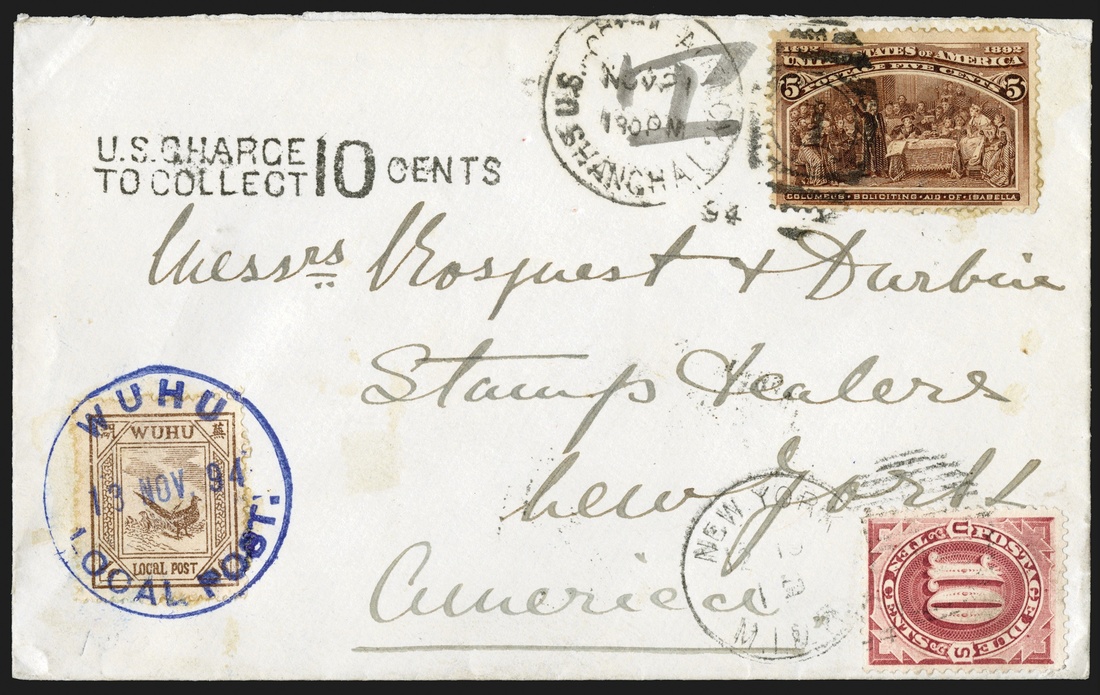 U.S. POSTAL AGENCY
NOV 21
1 30 PM
SHANGHAI
94
1492 UNITED STATES OF AMERICA 1892
POSTAGE FIVE CENTS
5 5
COLUMBUS SOLICITING AID OF ISABELLA
U.S. CHARGE
TO COLLECT 10 CENTS
Messrs & Durbin
Stamp Dealers
New York
America
WUHU
WUHU
13 NOV 94
LOCAL POST
LOCAL POST.
NEW YORK
POSTAGE DUE
10
TEN CENTS